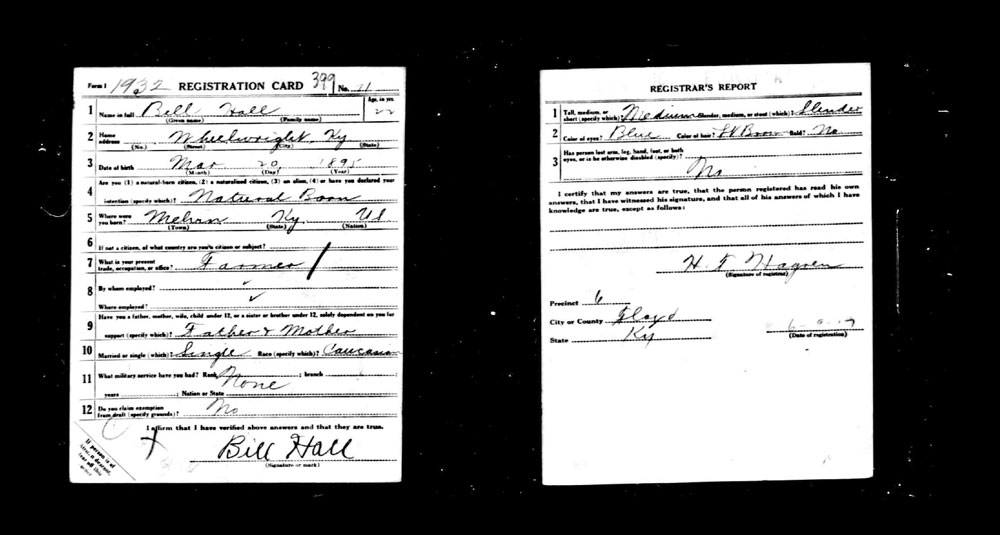 Form 1 1932 REGISTRATION CARD 399 No. 11
1 Name in full Bill Hall Age, in yrs. 22
(Given name) (Family name)
2 Home address Wheelwright, Ky
(No.) (Street) (City) (State)
3 Date of birth Mar 20, 1895
(Month) (Day) (Year)
4 Are you (1) a natural-born citizen, (2) a naturalized citizen, (3) an alien, (4) or have you declared your
intention (specify which)? Natural Born
5 Where were you born? Ky US
(Town) (State) (Nation)
6 If not a citizen, of what country are you a citizen or subject?
7 What is your present trade, occupation, or office? Farmer
8 By whom employed?
Where employed?
9 Have you a father, mother, wife, child under 12, or a sister or brother under 12, solely dependent on you for
support (specify which)? Father & Mother
10 Married or single (which)? Single Race (specify which)? Caucasian
11 What military service have you had? Rank None ; branch ;
years ; Nation or State
12 Do you claim exemption from draft (specify grounds)? No
I affirm that I have verified above answers and that they are true.
Bill Hall
(Signature or mark)
If person is of
African descent,
tear off this
corner
REGISTRAR'S REPORT
1 Tall, medium, or short (specify which)? Medium Slender, medium, or stout (which)? Slender
2 Color of eyes? Blue Color of hair? Lt Brown Bald? No
3 Has person lost arm, leg, hand, foot, or both
eyes, or is he otherwise disabled (specify)?
No
I certify that my answers are true, that the person registered has read his own
answers, that I have witnessed his signature, and that all of his answers of which I have
knowledge are true, except as follows:
H. T. Hagren
(Signature of registrar)
Precinct 6
City or County Floyd
State Ky
6-5-17
(Date of registration)